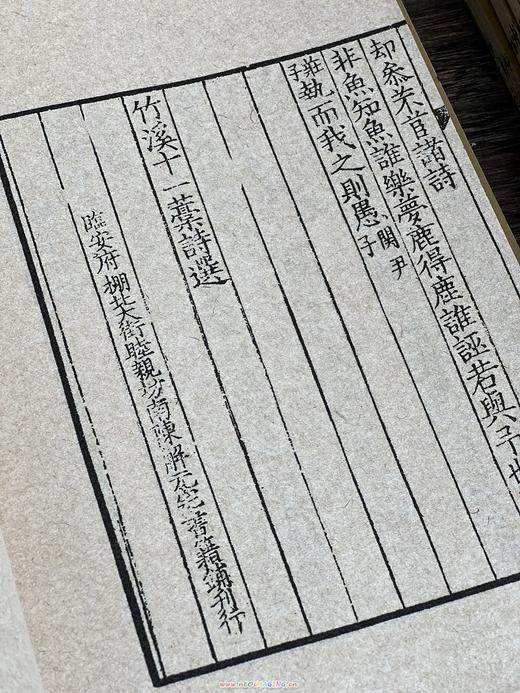 却忝關首諸詩
非魚知魚誰樂夢鹿得鹿誰誣若與子
莊子執而我之則愚關尹子
竹溪十一藁詩選
臨安府棚北大街睦親坊南陳解元宅書籍鋪刊行